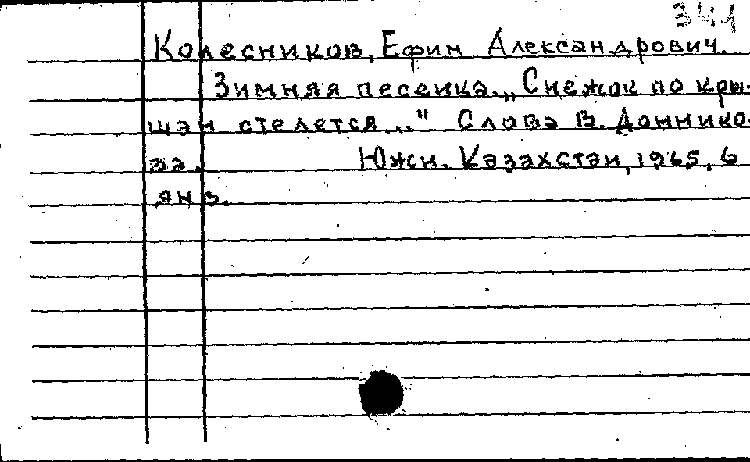 341
Колесников, Ефим Александрович.
Зимняя песенка. „Снежок по кры-
шам стелется..." Слова В. Доннико-
ва. Южн. Казахстан, 1965, 6
янв.